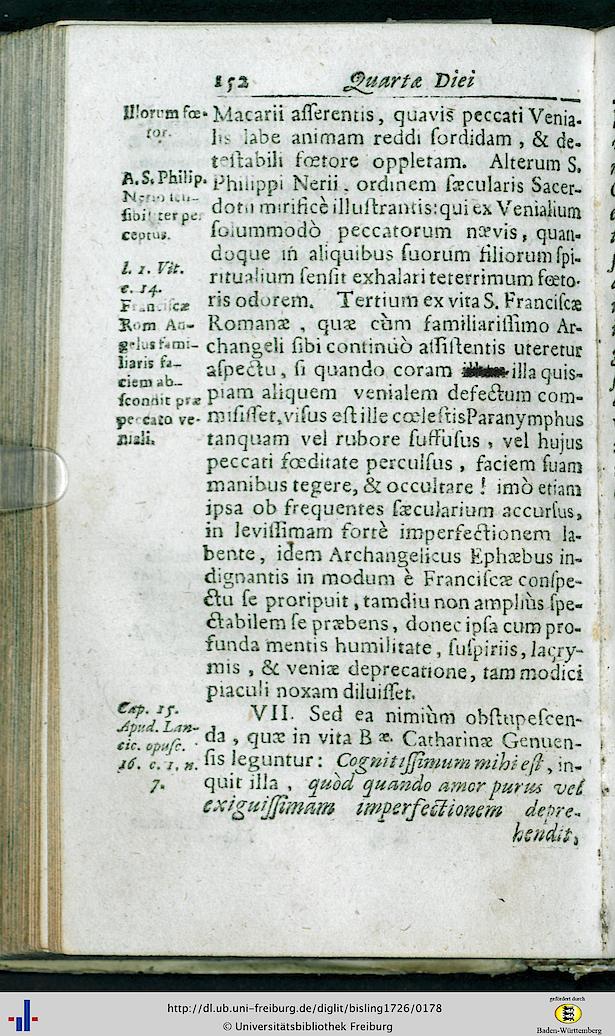 152 Quartæ Diei
Illorum fœ-
tor.
A. S. Philip.
Nerio sen-
sibiliter per
ceptus.
l. 1. Vit.
c. 14.
Franciscæ
Rom An-
gelus fami-
liaris fa-
ciem ab-
scondit præ
peccato ve-
niali.
Macarii aſſerentis, quavis peccati Venia-
lis labe animam reddi ſordidam, & de-
teſtabili fœtore oppletam. Alterum S.
Philippi Nerii, ordinem ſæcularis Sacer-
dotii mirificè illuſtrantis: qui ex Venialium
ſolummodò peccatorum nævis, quan-
doque in aliquibus ſuorum filiorum ſpi-
ritualium ſenſit exhalari teterrimum fœto-
ris odorem. Tertium ex vita S. Franciſcæ
Romanæ, quæ cùm familiariſſimo Ar-
changeli ſibi continuò aſſiſtentis uteretur
aſpectu, ſi quando coram illa quis-
piam aliquem venialem defectum com-
miſiſſet, viſus eſt ille cœleſtis Paranymphus
tanquam vel rubore ſuffuſus, vel hujus
peccati fœditate perculſus, faciem ſuam
manibus tegere, & occultare! imò etiam
ipsa ob frequentes ſæcularium accurſus,
in leviſſimam fortè imperfectionem la-
bente, idem Archangelicus Ephæbus in-
dignantis in modum è Franciſcæ conſpe-
ctu ſe proripuit, tamdiu non ampliùs ſpe-
ctabilem ſe præbens, donec ipſa cum pro-
funda mentis humilitate, ſuſpiriis, lacry-
mis, & veniæ deprecatione, tam modici
piaculi noxam diluiſſet.
Cap. 15.
Apud. Lan-
cic. opusc.
16. c. 1. n.
7.
VII. Sed ea nimiùm obſtupeſcen-
da, quæ in vita B æ. Catharinæ Genuen-
ſis leguntur: Cognitiſſimum mihi eſt, in-
quit illa, quòd quando amor purus vel
exiguiſſimam imperfectionem depre-
hendit,
http://dl.ub.uni-freiburg.de/diglit/bisling1726/0178
© Universitätsbibliothek Freiburg
gefördert durch
Baden-Württemberg